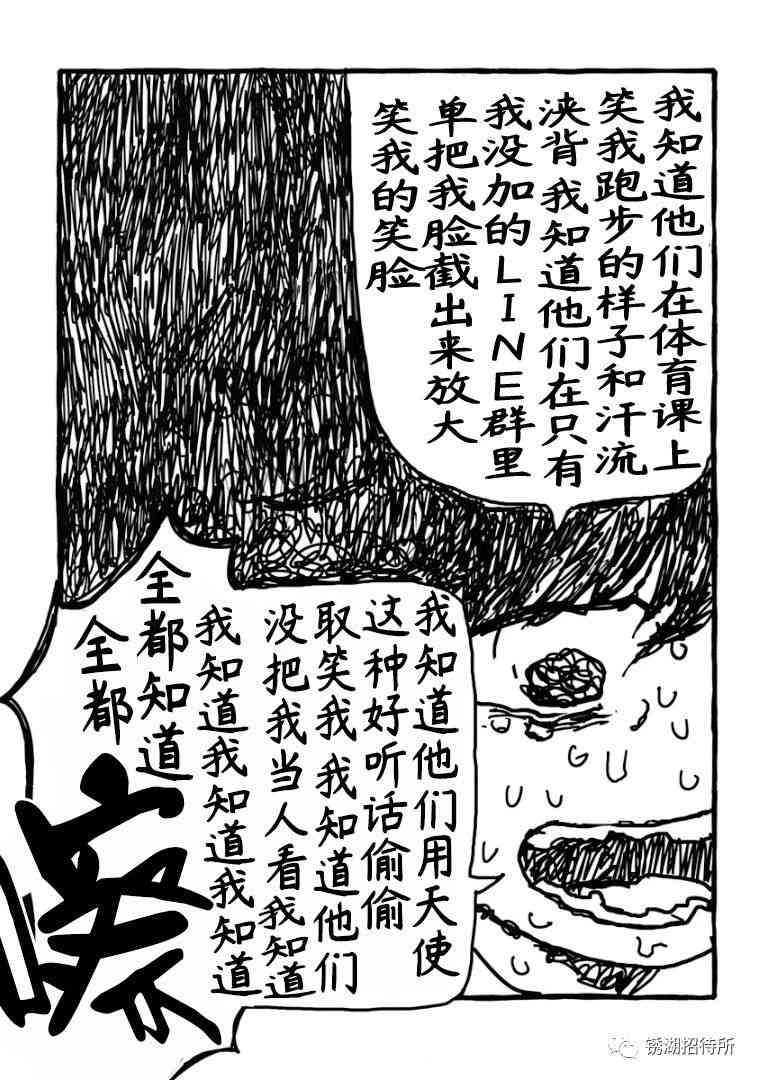 我知道他们在体育课上
笑我跑步的样子和汗流
浃背 我知道他们在只有
我没加的LINE群里
单把我脸截出来放大
笑我的笑脸
我知道他们用天使
这种好听话偷偷
取笑我 我知道他们
没把我当人看我知道
我知道我知道我知道
全都知道
全都
嚓
锈湖招待所